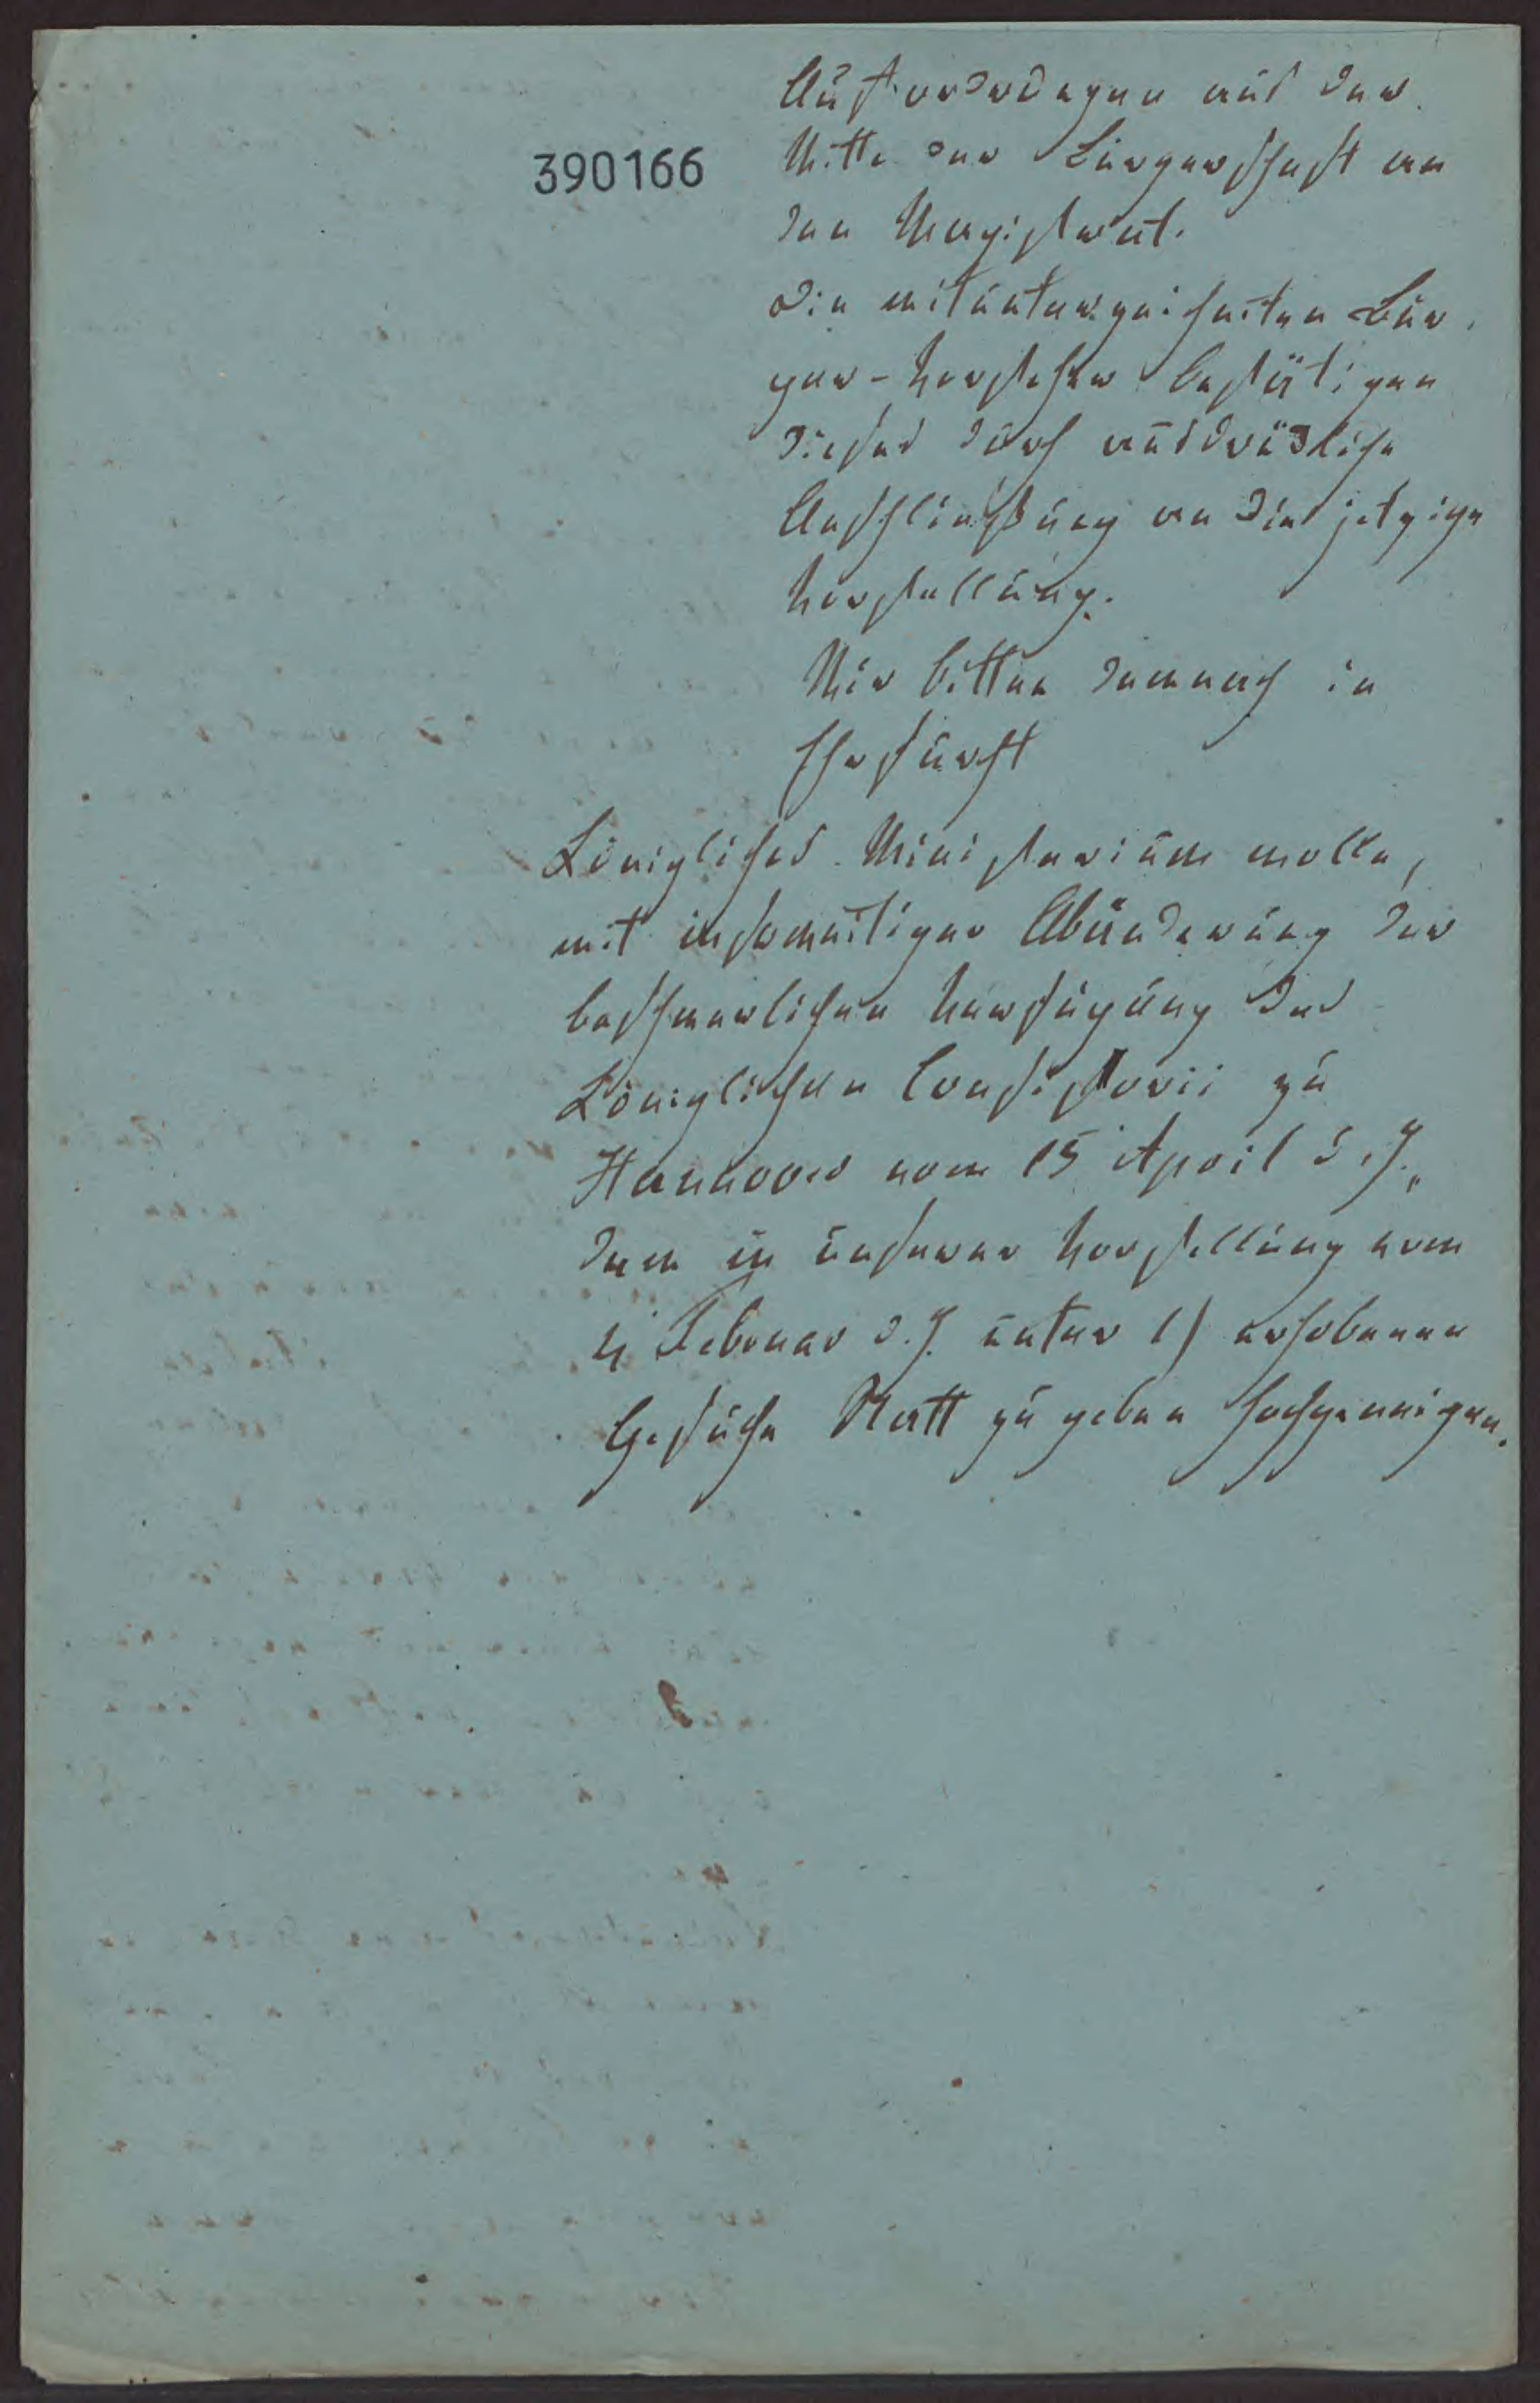 Aufforderungen aus der
390166
Mitte der Bürgerschaft an
den Magistrat.
Die mitunterzeichneten Bür-
ger-Vorsteher bestätigen
dieses durch ausdrückliche
Anschließung an die jetzige
Vorstellung.
Wir bitten demnach in
Ehrfurcht
Königliches Ministerium wolle,
mit insoweitiger Abänderung der
beschwerlichen Verfügung des
Königlichen Consistorii zu
Hannover vom 15 April d. J.,
dem in unserer Vorstellung vom
4 Februar d. J. unter 1) erhobenen
Gesuche Statt zu geben hochgeneigen.